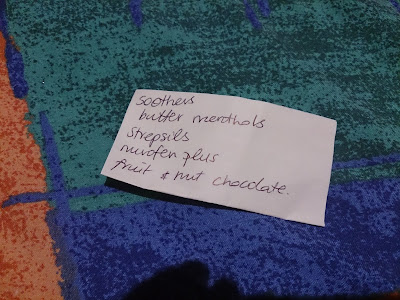 soothers
butter menthols
strepsils
nurofen plus
fruit & nut chocolate.